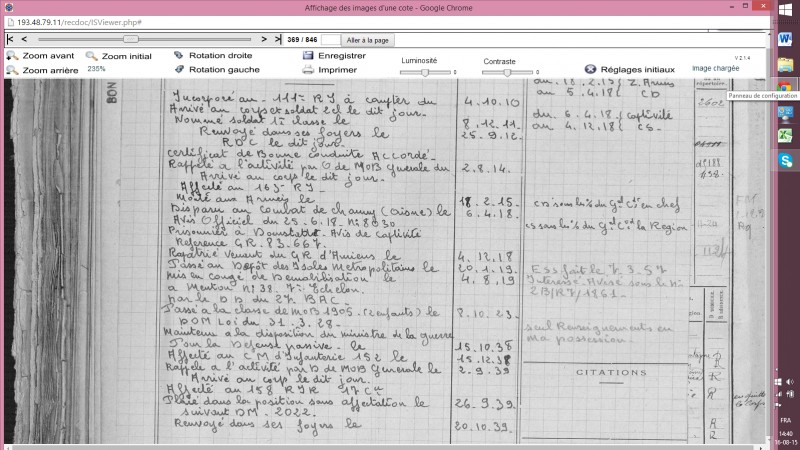 Affichage des images d'une cote - Google Chrome
193.48.79.11/recdoc/ISViewer.php#
369 / 846
Aller à la page
Zoom avant
Zoom initial
Rotation droite
Enregistrer
Luminosité
Contraste
V 2.1.4
Zoom arrière
235%
Rotation gauche
Imprimer
Réglages initiaux
Image chargée
Panneau de configuration
BON
Incorporé au 111e RI à compter du 4.10.10
Arrivé au corps et soldat 2cl le dit jour.
Nommé soldat 1e classe le 8.12.11.
Renvoyé dans ses foyers le 25.9.12.
RDC le dit jour.
Certificat de Bonne conduite Accordé.
Rappelé à l'activité par O de MOB Generale du 2.8.14.
Arrivé au corps le dit jour.
Affecté au 163e RI.
Monté aux Armées le 18.2.15.
Disparu au Combat de channy (aisne) le 6.4.18.
Avis Officiel du 25.6.18. N: 8030
Prisonnier à Avis de Captivité
Reference GR. 83.667.
Rapatrié Venant du GR d'Amiens le 4.12.18
Passé au Dépôt des Isolés Metropolitains le 20.1.19.
mis en congé de Demobilisation le 4.8.19
à Menton N: 38. 7e Echelon.
par le DD du 27e BAC.
Passé à la classe de MOB 1905. (2 enfants) le 8.10.23.
DDM Loi du 31.3.28.
Maintenu à la disposition du ministre de la guerre
Pour la Defense passive. le 15.10.38
Affecté au CM d'Infanterie 152 le 15.12.38
Rappelé à l'activité par D de MOB Generale le 2.9.39
Arrivé au corps le dit jour.
Affecté au 158 RIR 17 Cie
Placé dans la position sans affectation le 26.9.39.
suivant DM. 2022.
Renvoyé dans ses foyers le 20.10.39.
au 18.2.15 Z. Armées
au 5.4.18 CD
du 6.4.18 Captivité
au 4.12.18 CS.
2602
cz sous le % du Gal Ct en chef
cs sous le % du Gal Ct la Region
ESS fait le 7.3.57
Interessé Avisé sous le N:
2B/RT/1861.
seul Renseignements en
ma possession
CITATIONS
R
R
R
R
FRA
14:40
16-08-15